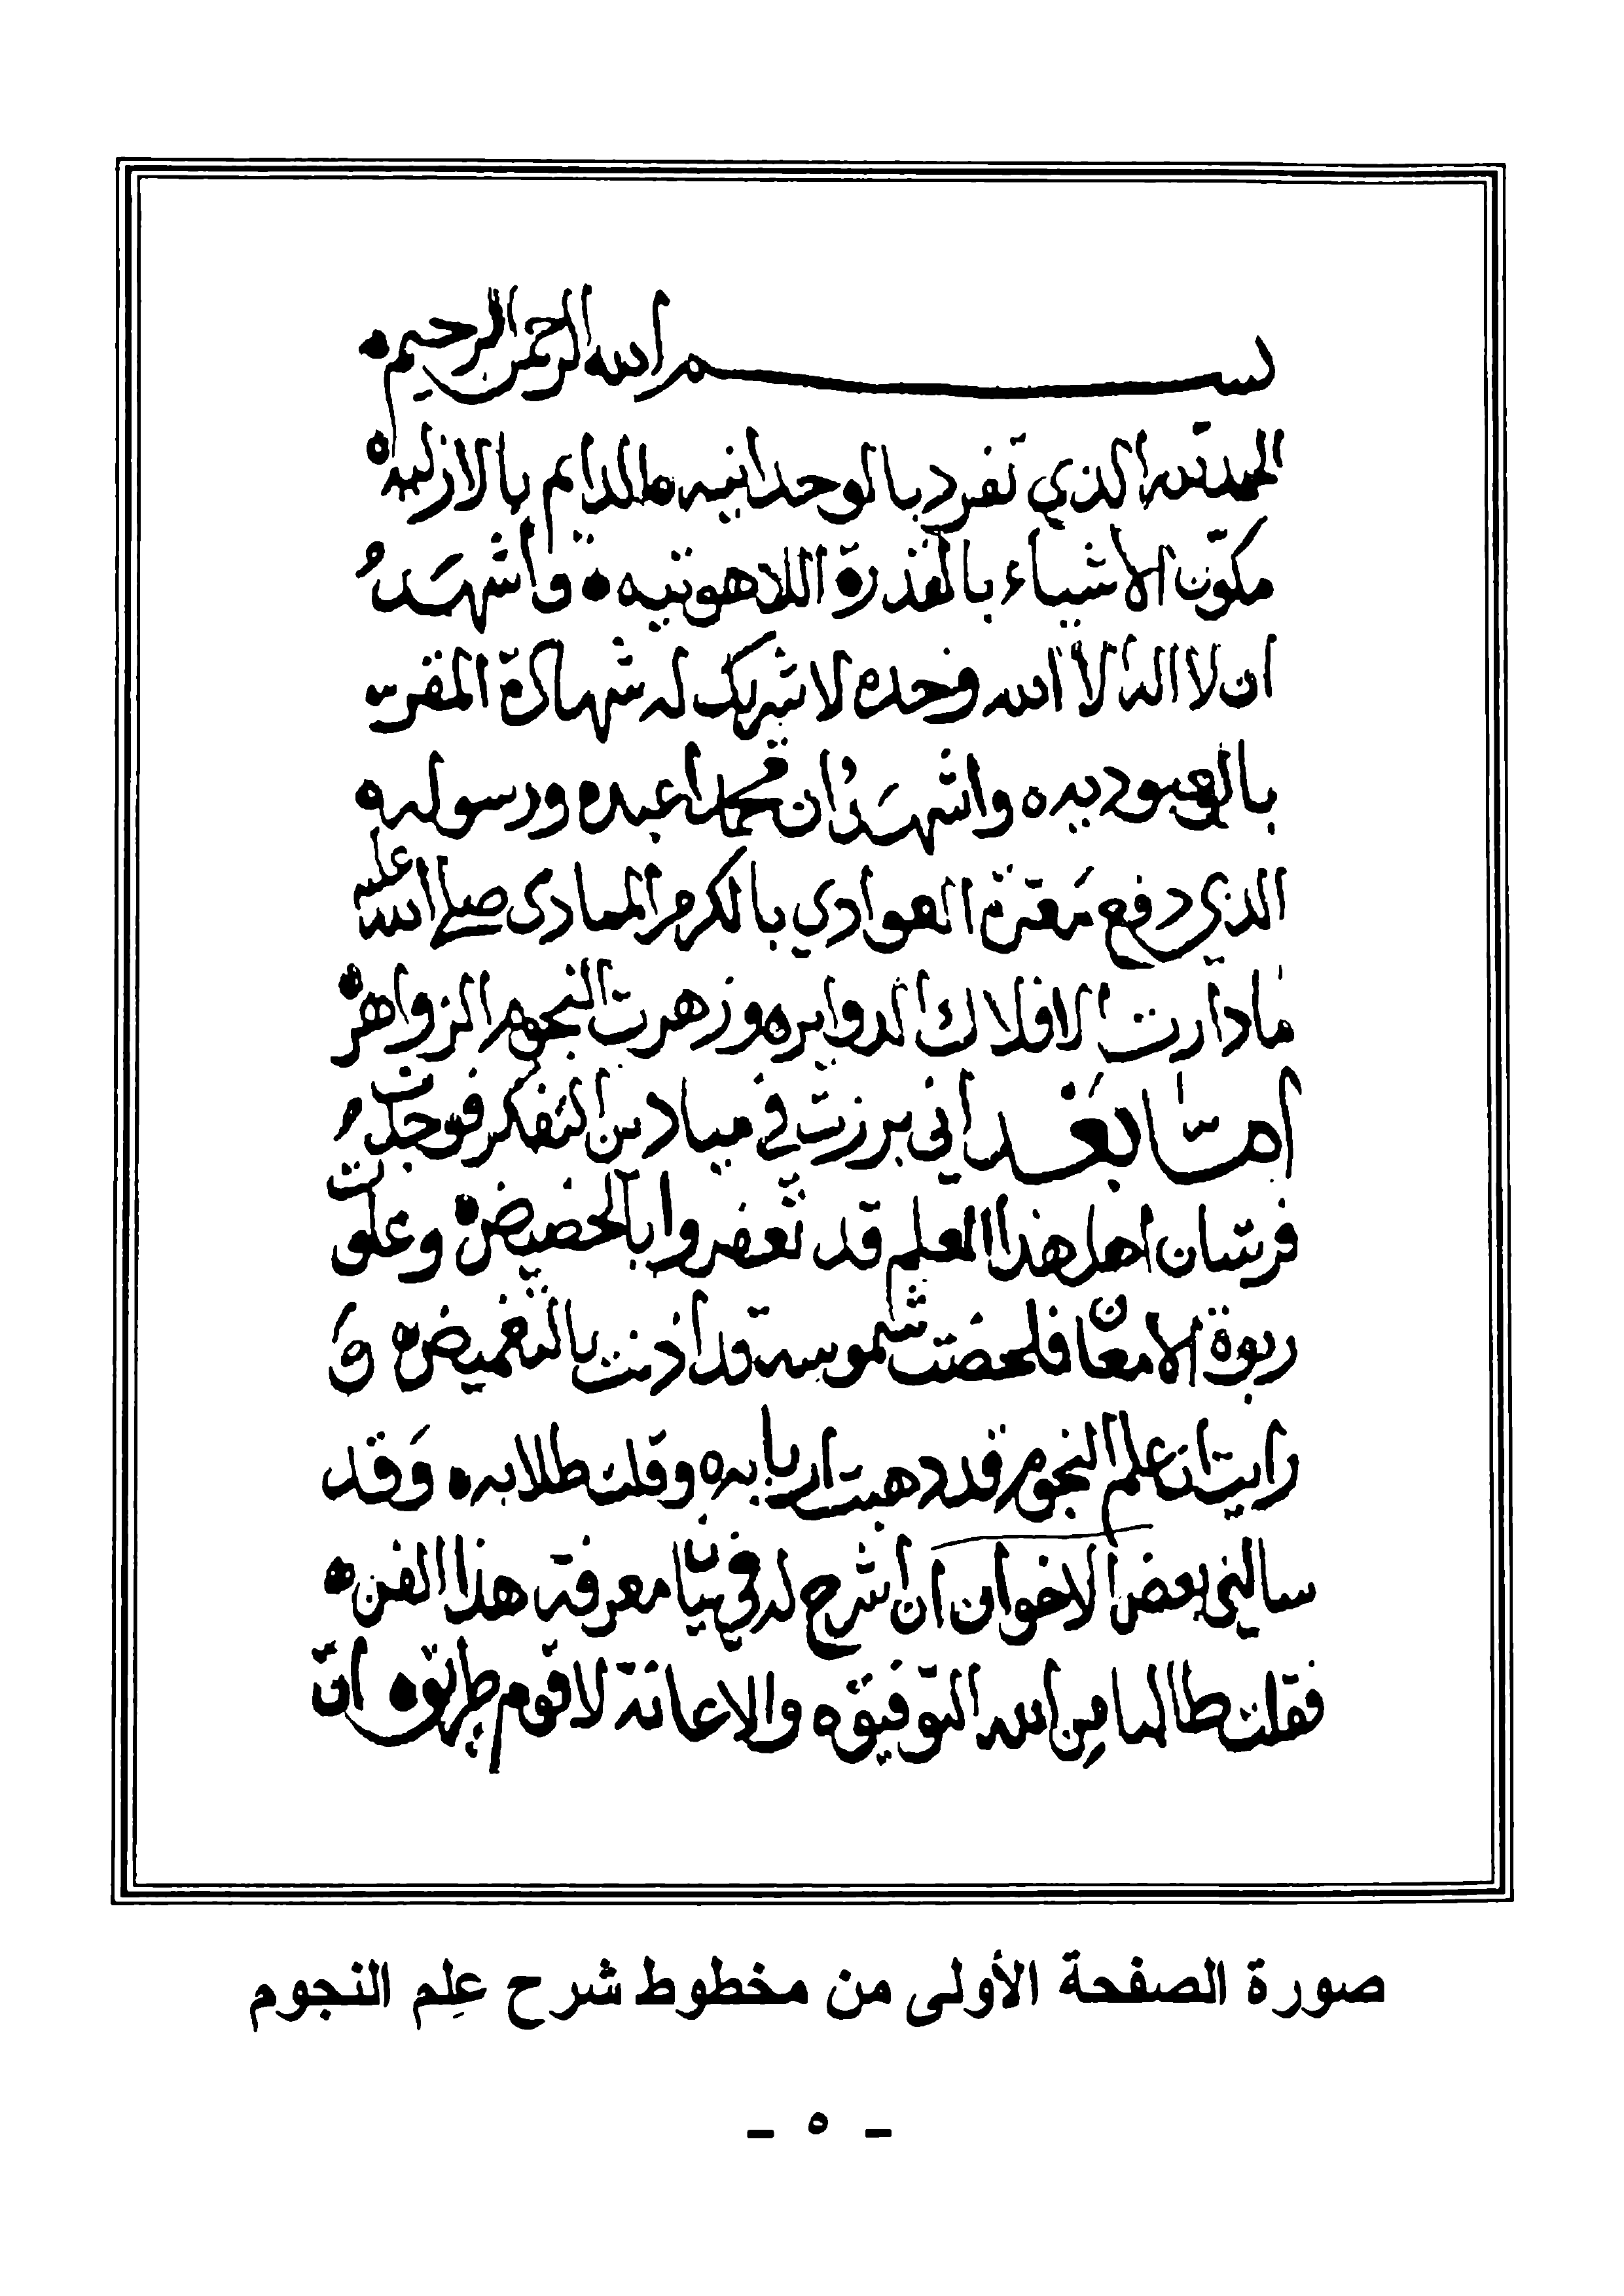 بسم الله الرحمن الرحيم
الحمد لله الذي تفرد بالوحدانيه الدايم بالازليه
مكوّن الاشياء بالقدرة اللاهوتيه واشهدُ
ان لا اله الا الله وحده لا شريك له شهادة المقر
بالعبوديه واشهدُ ان محمدا عبده ورسوله
الذي دفع مَعَرّة العوادي بالكرم المبادى صلى الله عليه
ما دارت الافلاك الدوايره وزهرت النجوم الزواهر
امّا بَعْد اني برزت في ميادين التفكر فوجدت
فرسان اهل هذا العلم قد تعفروا بالحضيض وعلوت
ربوة الامعان فلحضت شموسه قد اذنت بالتغميض و
رايت ان علم النجوم قد دهبت اربابه وقلت طلابه وَقد
سالني بعض الاخوان ان اشرح له في معرفة هذا الفن
فقلت طالبا مِن الله التوفيق والاعانة لاقوم طريق ان
صورة الصفحة الأولى من مخطوط شرح عِلم النجوم
- ٥ -